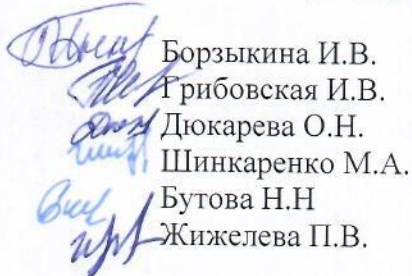 Борзыкина И.В.
Грибовская И.В.
Дюкарева О.Н.
Шинкаренко М.А.
Бутова Н.Н
Жижелева П.В.